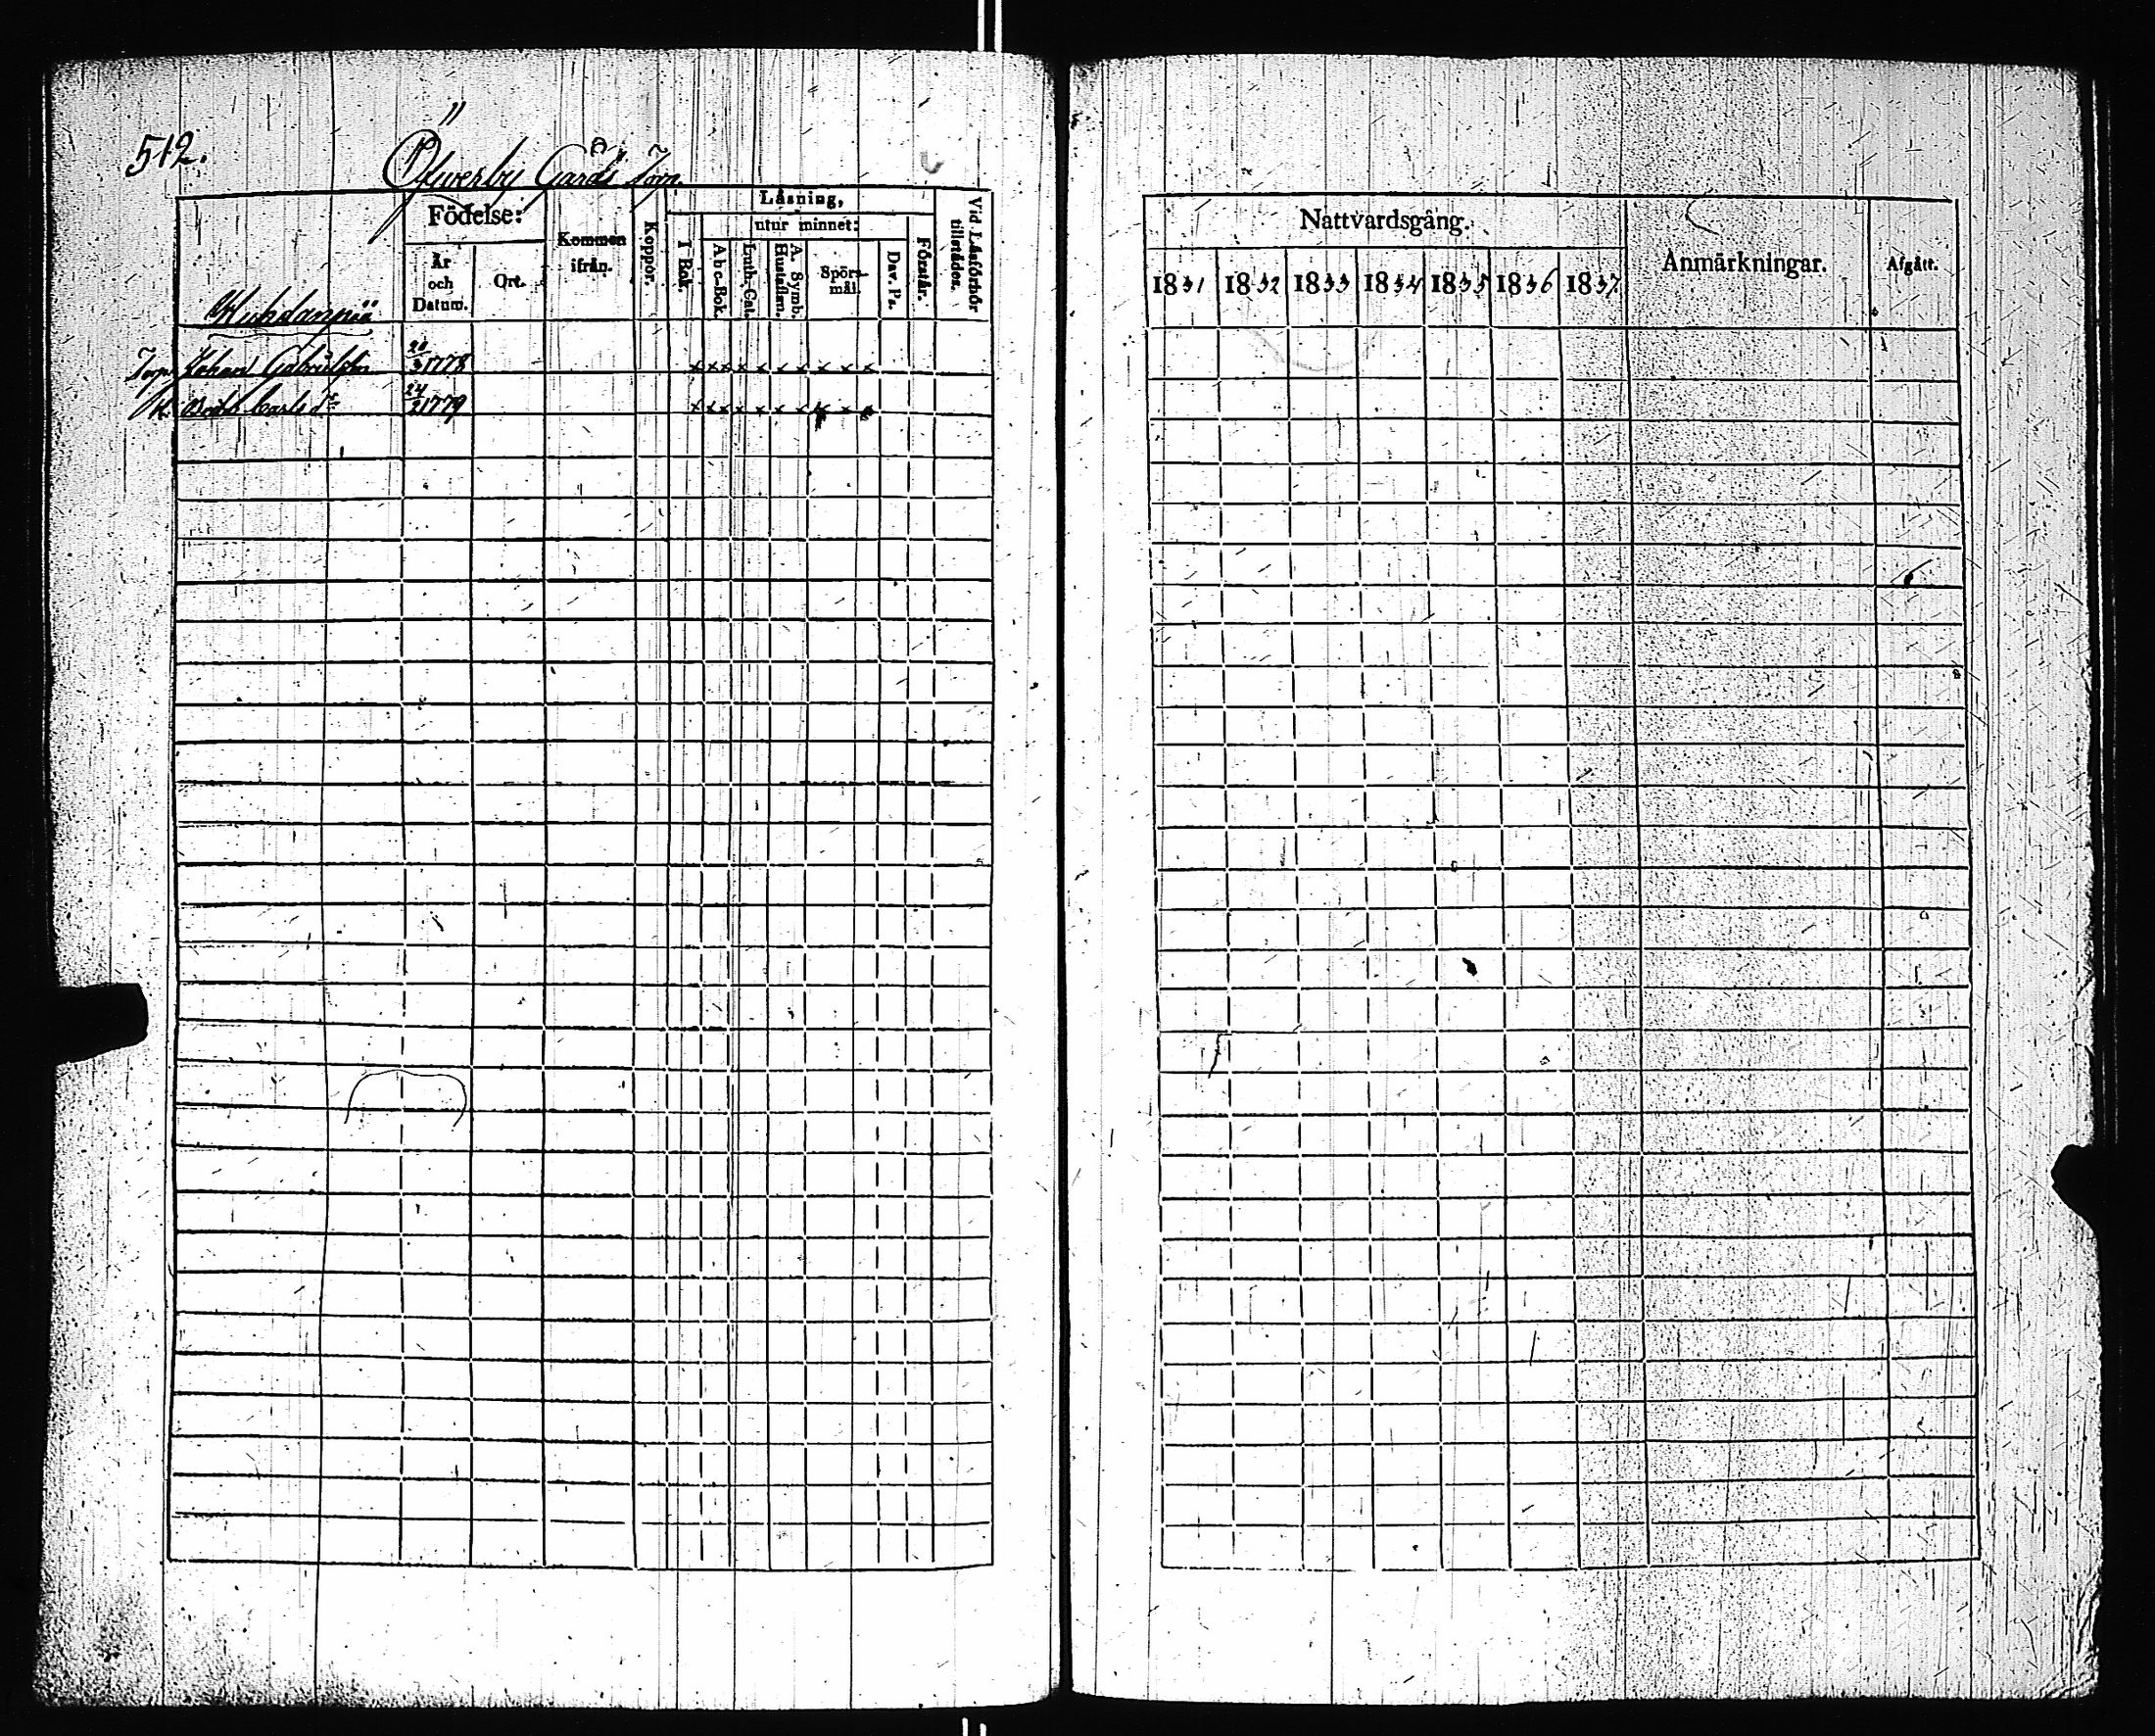 512.
Öfverby Gårds Torp
Födelse:
År och Datum.
Ort.
Kommen ifrån.
Koppor.
Läsning,
utur minnet:
I Bok.
Abc-Bok.
Luth. Cat.
A. Symb. Hustaflan.
Spörsmål.
Dav. Ps.
Förstår.
Vid Läsförhör tillstädes.
Torp. Johan Gabrielsson 20/3 1778 x x x x x x x x x x
H. Carlsdr 24/2 1779 x x x x x x x x x x
Nattvardsgång.
1831 1832 1833 1834 1835 1836 1837
Anmärkningar.
Afgått.